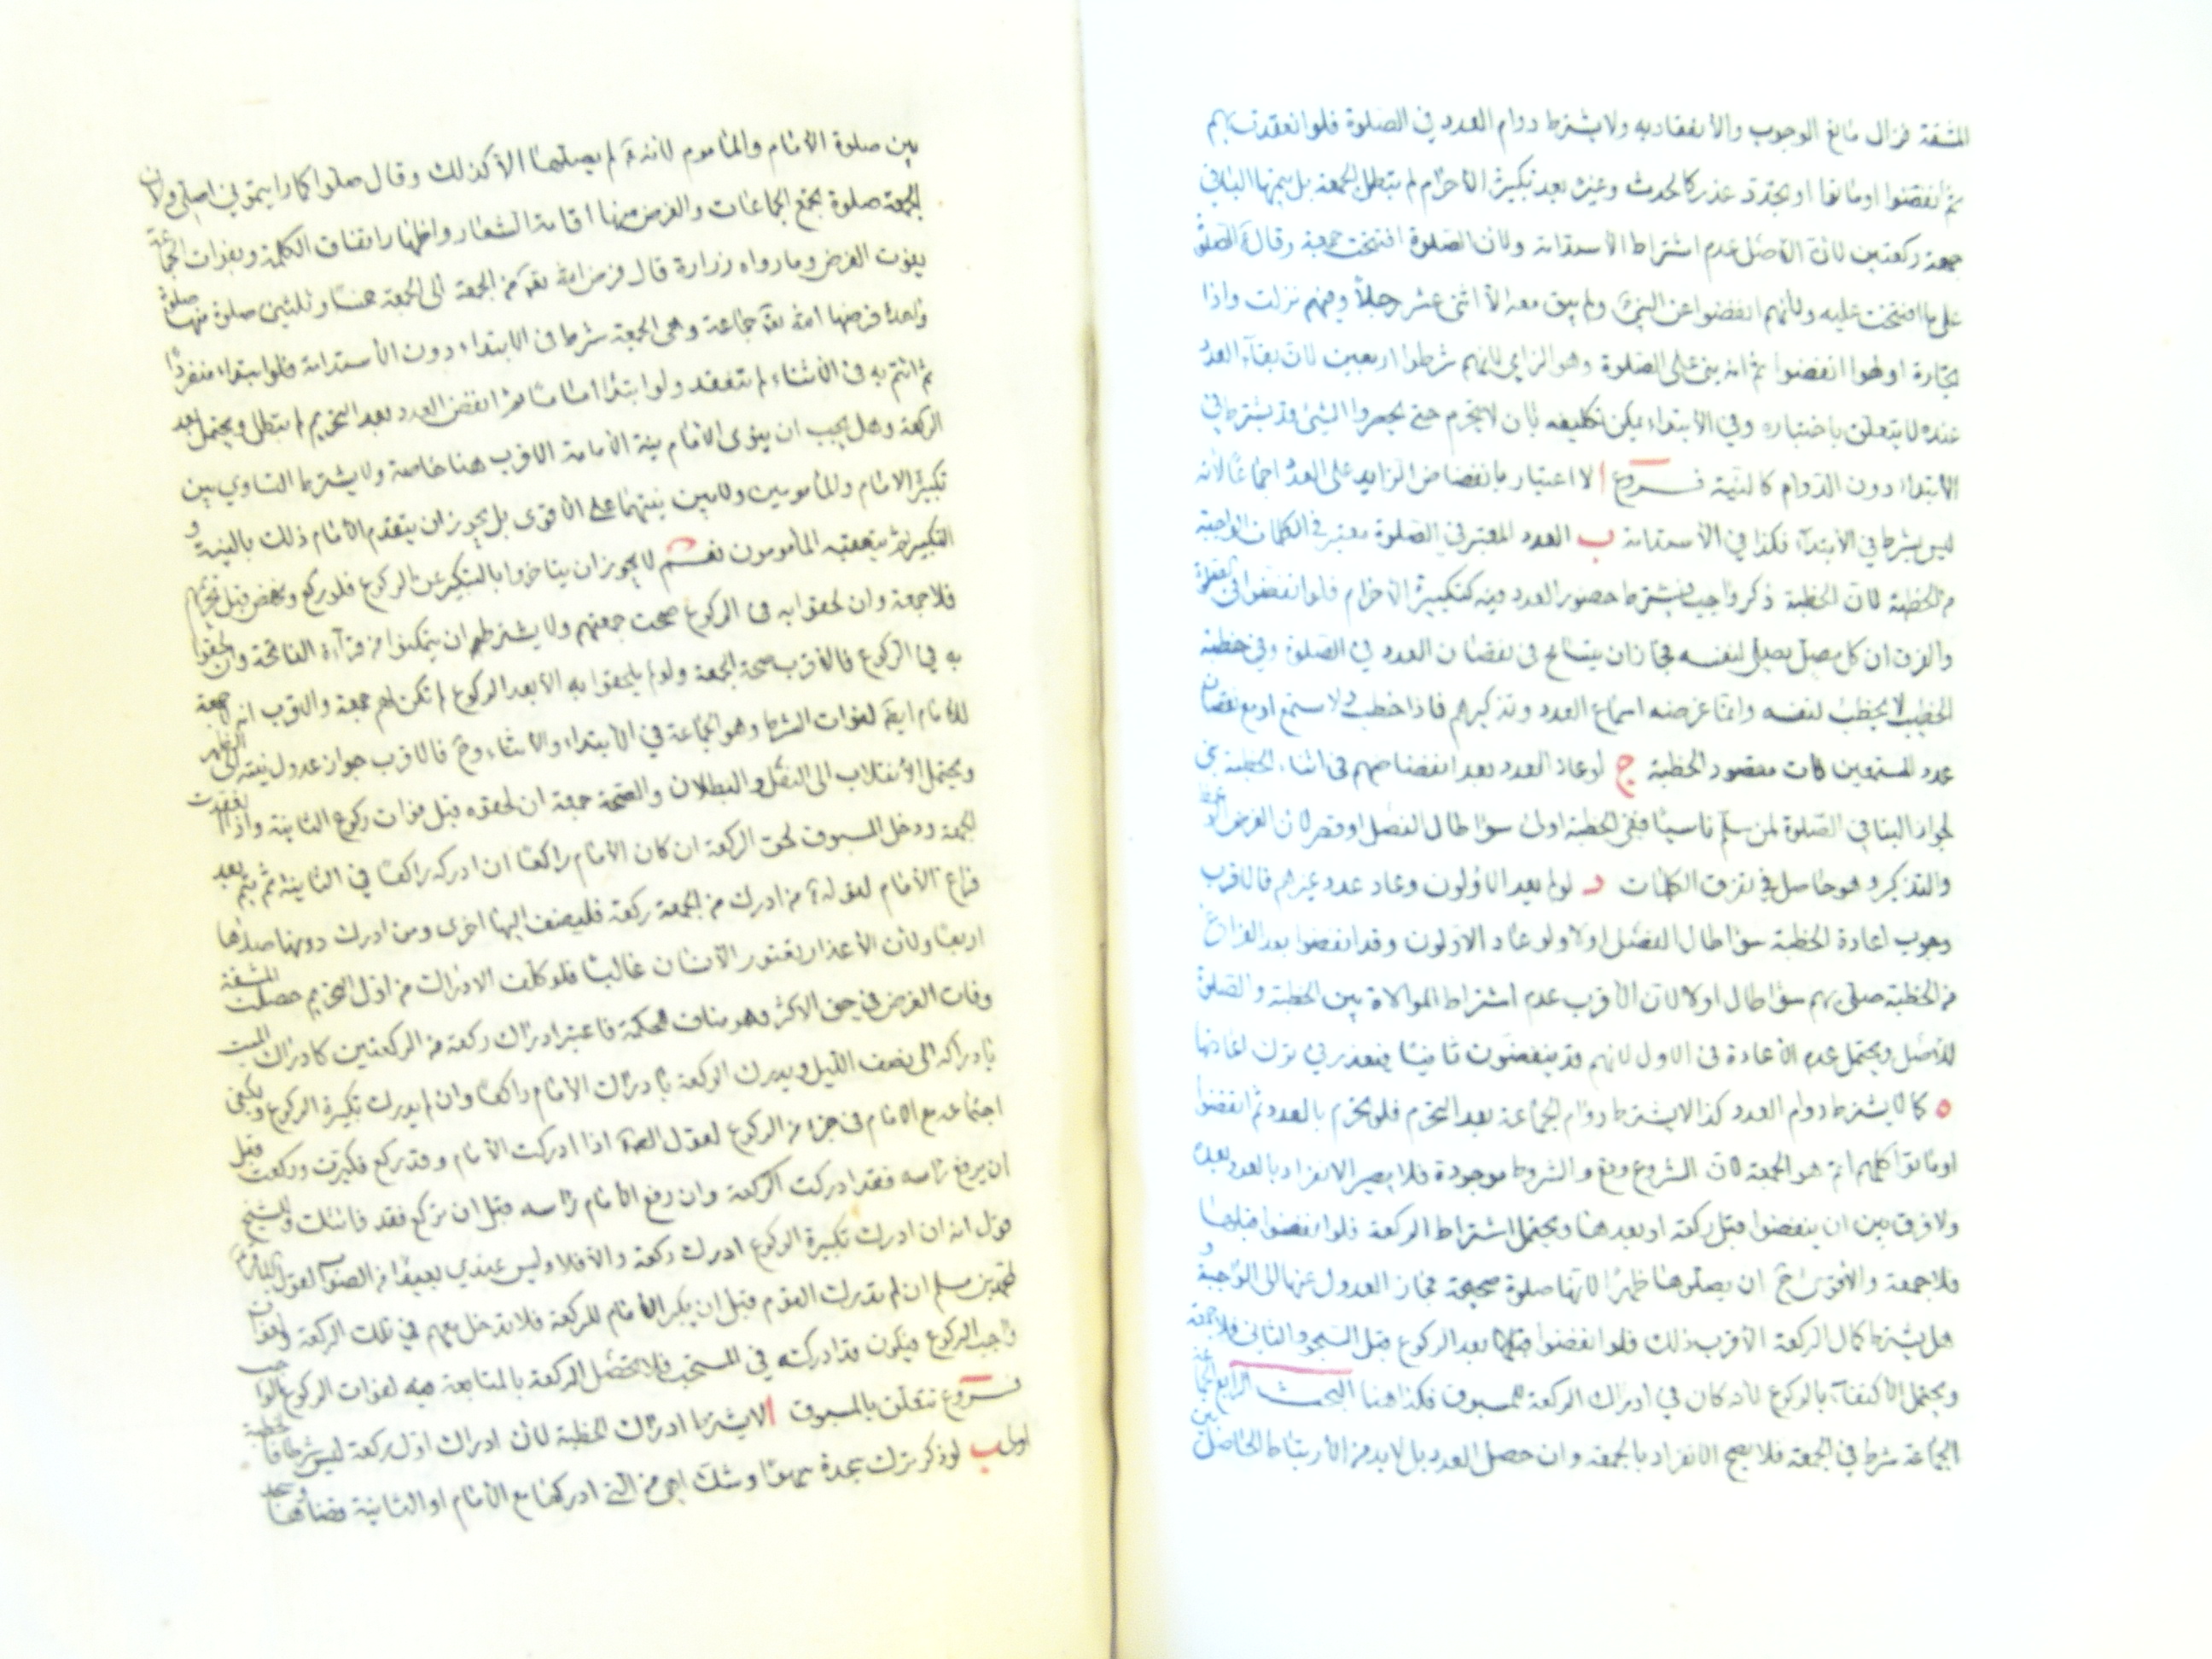 المشقة فزال مانع الوجوب والانعقاد به ولا يشترط دوام العدد في الصلوة فلو انعقدت بهم
ثم انفضوا او ماتوا او تجدد عذر كالحدث وغيره بعد تكبيرة الاحرام لم تبطل الجمعة بل يتمها الباقي
جمعة ركعتين لان الاصل عدم اشتراط الاستدامة ولان الصلوة افتتحت جمعة وقال الصلوة
على ما افتتحت عليه ولانهم انفضوا عن النبي ولم يبق معه الا اثنى عشر رجلاً وفيهم نزلت واذا
تجارة او لهوا انفضوا ثم انه بنى على الصلوة وهو الزامي لانهم شرطوا اربعين لان بقاء العدد
عنده لا يتعلق باختياره وفي الابتداء يمكن تكليفه بان لا يحرم حتى يحضروا الشئ قد يشترط في
الابتداء دون الدوام كالنية فروع ا لا اعتبار بانفضاض الزايد على العدد اجماعا لانه
ليس بشرط في الابتداء فكذا في الاستدامة ب العدد المعتبر في الصلوة معتبر في الكلمات الواجبة
من الخطبة لان الخطبة ذكر واجب فيشترط حضور العدد فيه كتكبيرة الاحرام فلو انفضوا في
والفرق ان كل مصل يصلي لنفسه فجاز ان يتسامح في نقصان العدد في الصلوة وفي خطبة
الخطيب لا يخطب لنفسه وانما غرضه اسماع العدد وتذكيرهم فاذا خطب ولا مستمع او مع نقصان
عدد المستمعين فات مقصود الخطبة ج لو عاد العدد بعد انفضاضهم في اثناء الخطبة بنى
لجواز البنا في الصلوة لمن سلم ناسيا ففي الخطبة اولى سواء طال الفصل او قصر لان الغرض الوعظ
والتذكير وهو حاصل في تفرق الكلمات د لو لم يعد الاولون وعاد عدد غيرهم فالاقرب
وجوب اعادة الخطبة سواء طال الفصل اولا ولو عاد الاولون وقد انفضوا بعد الفراغ
من الخطبة صلى بهم سواء طال اولا لان الاقرب عدم اشتراط الموالاة بين الخطبة والصلوة
للاصل ويحتمل عدم الاعادة في الاول لانهم قد ينفضون ثانيا فيعذر في ترك اعادتها
ه كما لا يشترط دوام العدد كذا لا يشترط دوام الجماعة بعد التحرم فلو تحرم بالعدد ثم انفضوا
او ماتوا كلهم اتم هو الجمعة لان الشروع وقع والشروط موجودة فلا يضر الانفراد بالعدد بعده
ولا فرق بين ان ينفضوا قبل ركعة او بعدها ويحتمل اشتراط الركعة فلو انفضوا قبلها
فلا جمعة والاقوى ح ان يصلوها ظهرا لانها صلوة صحيحة فجاز العدول عنها الى الواجبة و
هل يشترط كمال الركعة الاقرب ذلك فلو انفضوا قبلها بعد الركوع قبل السجود الثاني فلا جمعة
ويحتمل الاكتفاء بالركوع لادراكان في ادراك الركعة للمسبوق فكذا هنا البحث الرابع الجماعة
الجماعة شرط في الجمعة فلا يصح الانفراد بالجمعة وان حصل العدد بل لا بد من الارتباط الحاصل بين
بين صلوة الامام والماموم لانه لم يصلها الا كذلك وقال صلوا كما رايتموني اصلي ولان
الجمعة صلوة تجمع الجماعات والغرض منها اقامة الشعار واظهار اتفاق الكلمة وبفوات الجماعة
يفوت الغرض وما رواه زرارة قال فرض الله تع من الجمعة الى الجمعة خمسا وثلثين صلوة منها صلوة
واحدة فرضها الله تع في جماعة وهي الجمعة شرط في الابتداء دون الاستدامة فلو ابتداء منفردا
ثم ائتم به في الاثناء لم تنعقد ولو ابتدأ اماما ثم انفض العدد بعد التحريم لم تبطل ويحتمل بعد
الركعة وهل يجب ان ينوي الامام نية الامامة الاقرب هنا خاصة ولا يشترط التساوي بين
تكبيرة الامام والمأمومين ولا بين نيتهما على الاقوى بل يجوز ان يتقدم الامام ذلك بالنية و
التكبير ثم يتعقبه المأمومون نعم لا يجوز ان يتاخروا بالتكبير عن الركوع فلو ركع ونهض قبل تحرمهم
فلا جمعة وان لحقوا به في الركوع صحت جمعتهم ولا يشترط ان يتمكنوا من قراءة الفاتحة وان لحقوا
به في الركوع فالاقرب صحة الجمعة ولو لم يلحقوا به الا بعد الركوع لم تكن لهم جمعة والاقرب انه لا جمعة
للامام ايضا لفوات الشرط وهو الجماعة في الابتداء والاثناء وح فالاقرب جواز عدول نيته الى الظهر
ويحتمل الانقلاب الى النفل والبطلان والصحة جمعة ان لحقوه قبل فوات ركوع الثانية واذا انعقدت
الجمعة ودخل المسبوق لحق الركعة ان كان الامام راكعا ان ادركه راكعا في الثانية ثم يتم بعد
فراغ الامام لقوله من ادرك من الجمعة ركعة فليضف اليها اخرى ومن ادرك دونها صلاها
اربعا ولان الاعذار تعتور الانسان غالبا فلو كلف الادراك من اول التحريم حصلت المشقة
وفات الغرض في حق الاكثر وهو مناف للحكمة فاعتبر ادراك ركعة من الركعتين كادراك المبيت
بادراكه الى نصف الليل ويدرك الركعة بادراك الامام راكعا وان لم يدرك تكبيرة الركوع ويكفي
اجتماعه مع الامام في جزء من الركوع لقول الصادق اذا ادركت الامام وقد ركع فكبرت وركعت قبل
ان يرفع راسه فقد ادركت الركعة وان رفع الامام راسه قبل ان تركع فقد فاتتك وللشيخ
قول انه ان ادرك تكبيرة الركوع ادرك ركعة والا فلا وليس عندي بعيدا من الصواب لقول الباقر
لمحمد بن مسلم ان لم تدرك القوم قبل ان يكبر الامام للركعة فلا تدخل معهم في تلك الركعة ولفوات
واجب الركوع فيكون قد ادركته في المستحب فلا تحصل الركعة بالمتابعة فيه لفوات الركوع الواجب
فروع تتعلق بالمسبوق ا لا يشترط ادراك الخطبة لان ادراك اول ركعة ليس شرطا فالخطبة
اولى ب لو ذكر ترك سجدة سهوا وشك اهي من التي ادركها مع الامام او الثانية قضاها وسجد